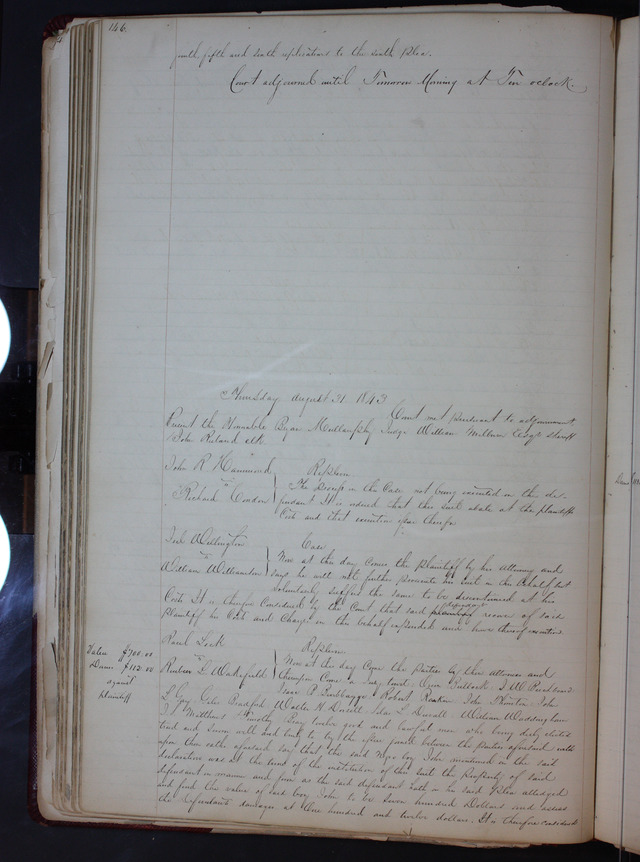 146.
fourth, fifth and sixth replications to the sixth Plea.
Court adjourned until Tomorrow Morning at Ten oclock.
Thursday August 31 1843
Court met pursuant to adjournment
Present the Honorable Bryan Mullanphy Judge William Milburn Esqr Sheriff
John Ruland clk
John R Hammond
vs
Richard Cowden
Replevin
The process in the Case not being executed on the de-
fendant It is ordered that this suit abate at the plaintiffs
Costs and that execution issue therefor
Joel Wellington
vs
William Williamson
Case
Now at this day comes the Plaintiff by his Attorney and
says he will not further prosecute his suit in this behalf but
voluntarily suffers the same to be discontinued at his
Costs It is therefore Considered by the Court that said defendant recover of said
Plaintiff his Costs and Charges in this behalf expended and have thereof execution
Value $700.00
Dams $112.00
against
plaintiff
Reuben L Wakefield
Replevin
Now at this day Come the Parties by their attornies and
thereupon Come a Jury to wit Owen Bullock
Isaac P Robert John John
Bradford Walter H Dorsett L Duvall William Waddingham
Timothy twelve good and lawful men who being duly elected
tried and sworn well and truly to try the issue joined between the parties aforesaid
upon their oaths aforesaid say that the said Negro boy John mentioned in the said
declaration was at the time of the institution of this suit the Property of said
defendant in manner and form as the said defendant hath in his said Pleas alledged
and find the value of said boy John to be Seven hundred Dollars and assess
the Defendants damages at One hundred and twelve dollars. It is therefore considered